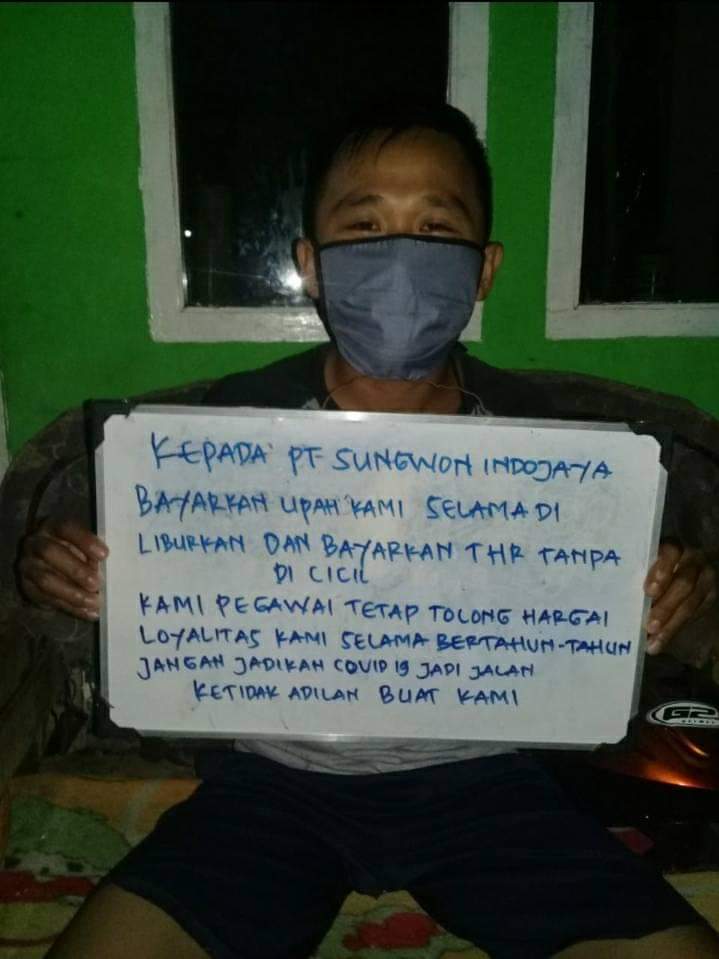 KEPADA PT SUNGWON INDOJAYA
BAYARKAN UPAH KAMI SELAMA DI
LIBURKAN DAN BAYARKAN THR TANPA
DI CICIL
KAMI PEGAWAI TETAP TOLONG HARGAI
LOYALITAS KAMI SELAMA BERTAHUN-TAHUN
JANGAN JADIKAN COVID 19 JADI JALAN
KETIDAK ADILAN BUAT KAMI
G2